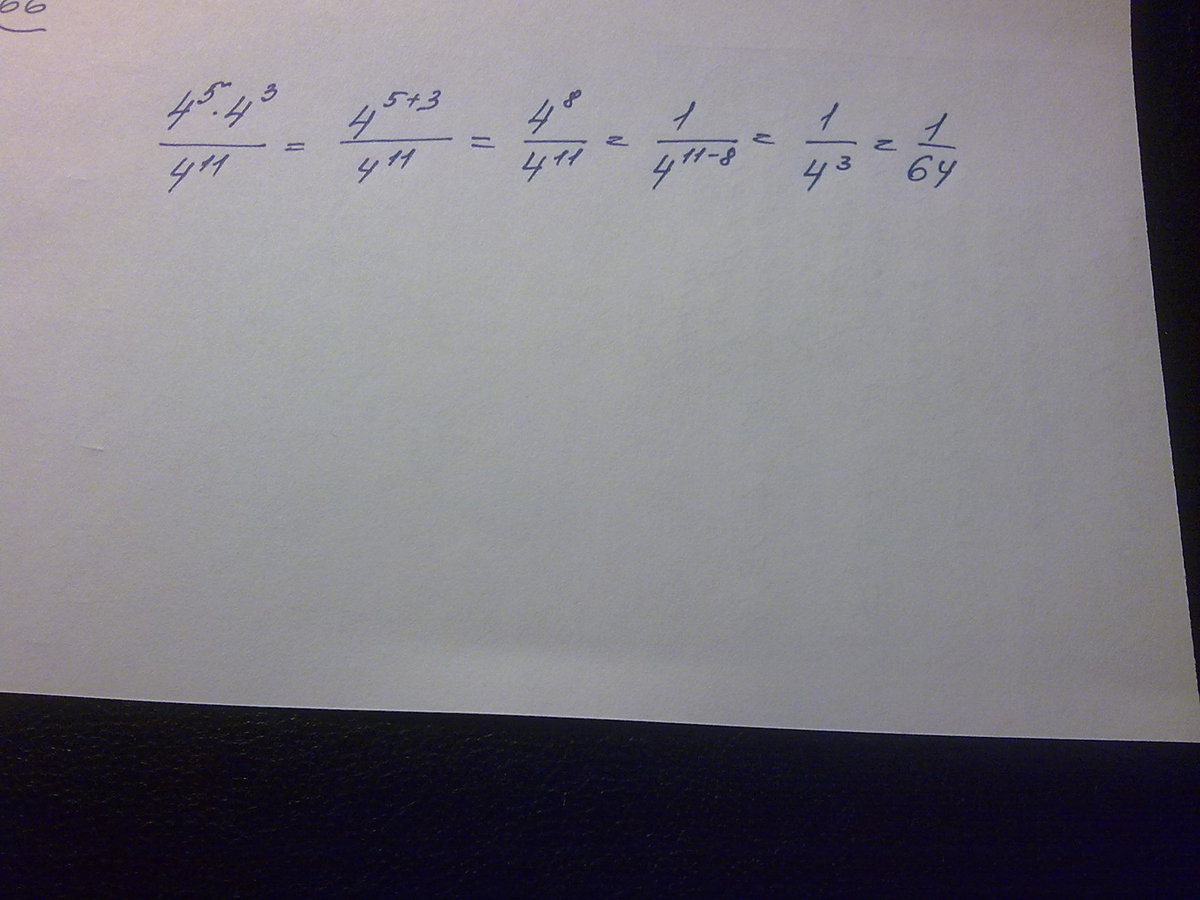 66
4^5 · 4^3 / 4^11 = 4^(5+3) / 4^11 = 4^8 / 4^11 = 1 / 4^(11-8) = 1 / 4^3 = 1 / 64